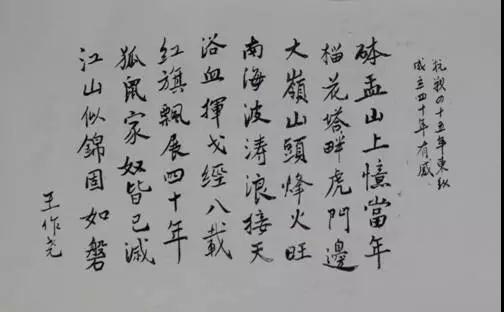 抗战四十五年东纵
成立四十年有感
砵盂山上憶當年
榴花塔畔虎門邊
大嶺山頭烽火旺
南海波涛浪接天
浴血揮戈經八載
红旗飄展四十年
狐鼠家奴皆已滅
江山似錦固如磐
王作尧